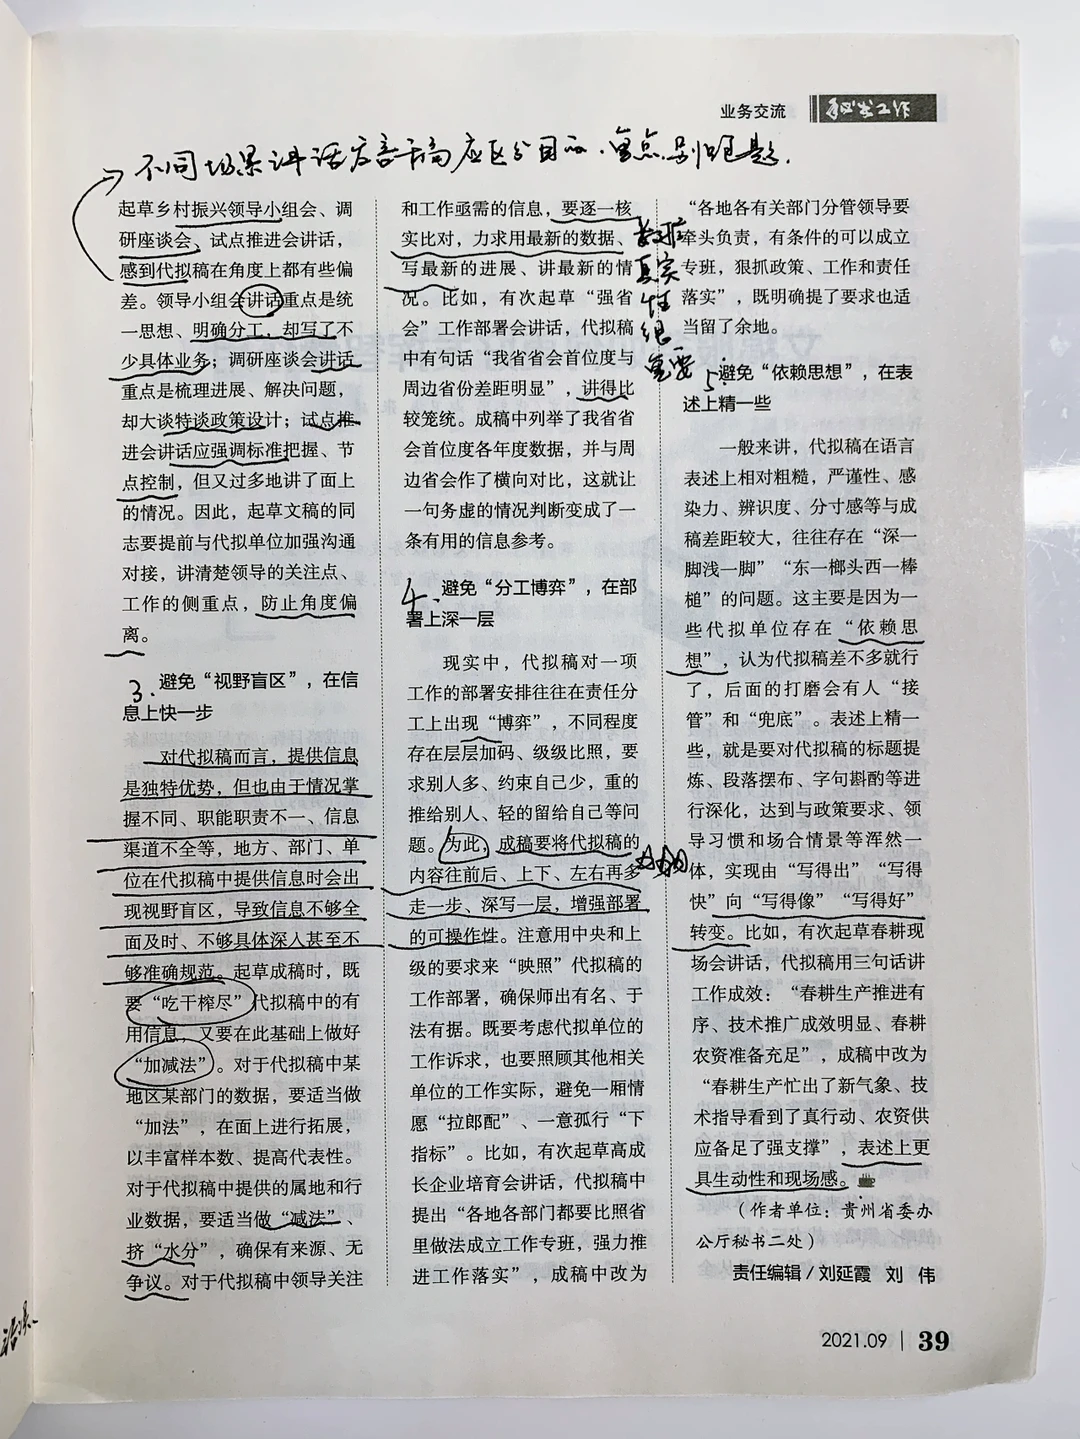 业务交流
秘书工作
不同场景讲话发言稿应区分目的、重点、别跑题。
起草乡村振兴领导小组会、调
研座谈会、试点推进会讲话，
感到代拟稿在角度上都有些偏
差。领导小组会讲话重点是统
一思想、明确分工，却写了不
少具体业务；调研座谈会讲话
重点是梳理进展、解决问题，
却大谈特谈政策设计；试点推
进会讲话应强调标准把握、节
点控制，但又过多地讲了面上
的情况。因此，起草文稿的同
志要提前与代拟单位加强沟通
对接，讲清楚领导的关注点、
工作的侧重点，防止角度偏
离。
3.避免“视野盲区”，在信
息上快一步
对代拟稿而言，提供信息
是独特优势，但也由于情况掌
握不同、职能职责不一、信息
渠道不全等，地方、部门、单
位在代拟稿中提供信息时会出
现视野盲区，导致信息不够全
面及时、不够具体深入甚至不
够准确规范。起草成稿时，既
要“吃干榨尽”代拟稿中的有
用信息，又要在此基础上做好
“加减法”。对于代拟稿中某
地区某部门的数据，要适当做
“加法”，在面上进行拓展，
以丰富样本数、提高代表性。
对于代拟稿中提供的属地和行
业数据，要适当做“减法”、
挤“水分”，确保有来源、无
争议。对于代拟稿中领导关注
和工作亟需的信息，要逐一核
实比对，力求用最新的数据、
写最新的进展、讲最新的情
况。比如，有次起草“强省
会”工作部署会讲话，代拟稿
中有句话“我省省会首位度与
周边省份差距明显”，讲得比
较笼统。成稿中列举了我省省
会首位度各年度数据，并与周
边省会作了横向对比，这就让
一句务虚的情况判断变成了一
条有用的信息参考。
真实
性很
重要
4.避免“分工博弈”，在部
署上深一层
现实中，代拟稿对一项
工作的部署安排往往在责任分
工上出现“博弈”，不同程度
存在层层加码、级级比照，要
求别人多、约束自己少，重的
推给别人、轻的留给自己等问
题。为此，成稿要将代拟稿的
内容往前后、上下、左右再多
走一步、深写一层，增强部署
的可操作性。注意用中央和上
级的要求来“映照”代拟稿的
工作部署，确保师出有名、于
法有据。既要考虑代拟单位的
工作诉求，也要照顾其他相关
单位的工作实际，避免一厢情
愿“拉郎配”、一意孤行“下
指标”。比如，有次起草高成
长企业培育会讲话，代拟稿中
提出“各地各部门都要比照省
里做法成立工作专班，强力推
进工作落实”，成稿中改为
“各地各有关部门分管领导要
牵头负责，有条件的可以成立
专班，狠抓政策、工作和责任
落实”，既明确提了要求也适
当留了余地。
5.避免“依赖思想”，在表
述上精一些
一般来讲，代拟稿在语言
表述上相对粗糙，严谨性、感
染力、辨识度、分寸感等与成
稿差距较大，往往存在“深一
脚浅一脚”“东一榔头西一棒
槌”的问题。这主要是因为一
些代拟单位存在“依赖思
想”，认为代拟稿差不多就行
了，后面的打磨会有人“接
管”和“兜底”。表述上精一
些，就是要对代拟稿的标题提
炼、段落摆布、字句斟酌等进
行深化，达到与政策要求、领
导习惯和场合情景等浑然一
体，实现由“写得出”“写得
快”向“写得像”“写得好”
转变。比如，有次起草春耕现
场会讲话，代拟稿用三句话讲
工作成效：“春耕生产推进有
序、技术推广成效明显、春耕
农资准备充足”，成稿中改为
“春耕生产忙出了新气象、技
术指导看到了真行动、农资供
应备足了强支撑”，表述上更
具生动性和现场感。
（作者单位：贵州省委办
公厅秘书二处）
责任编辑/刘延霞 刘 伟
2021.09 | 39